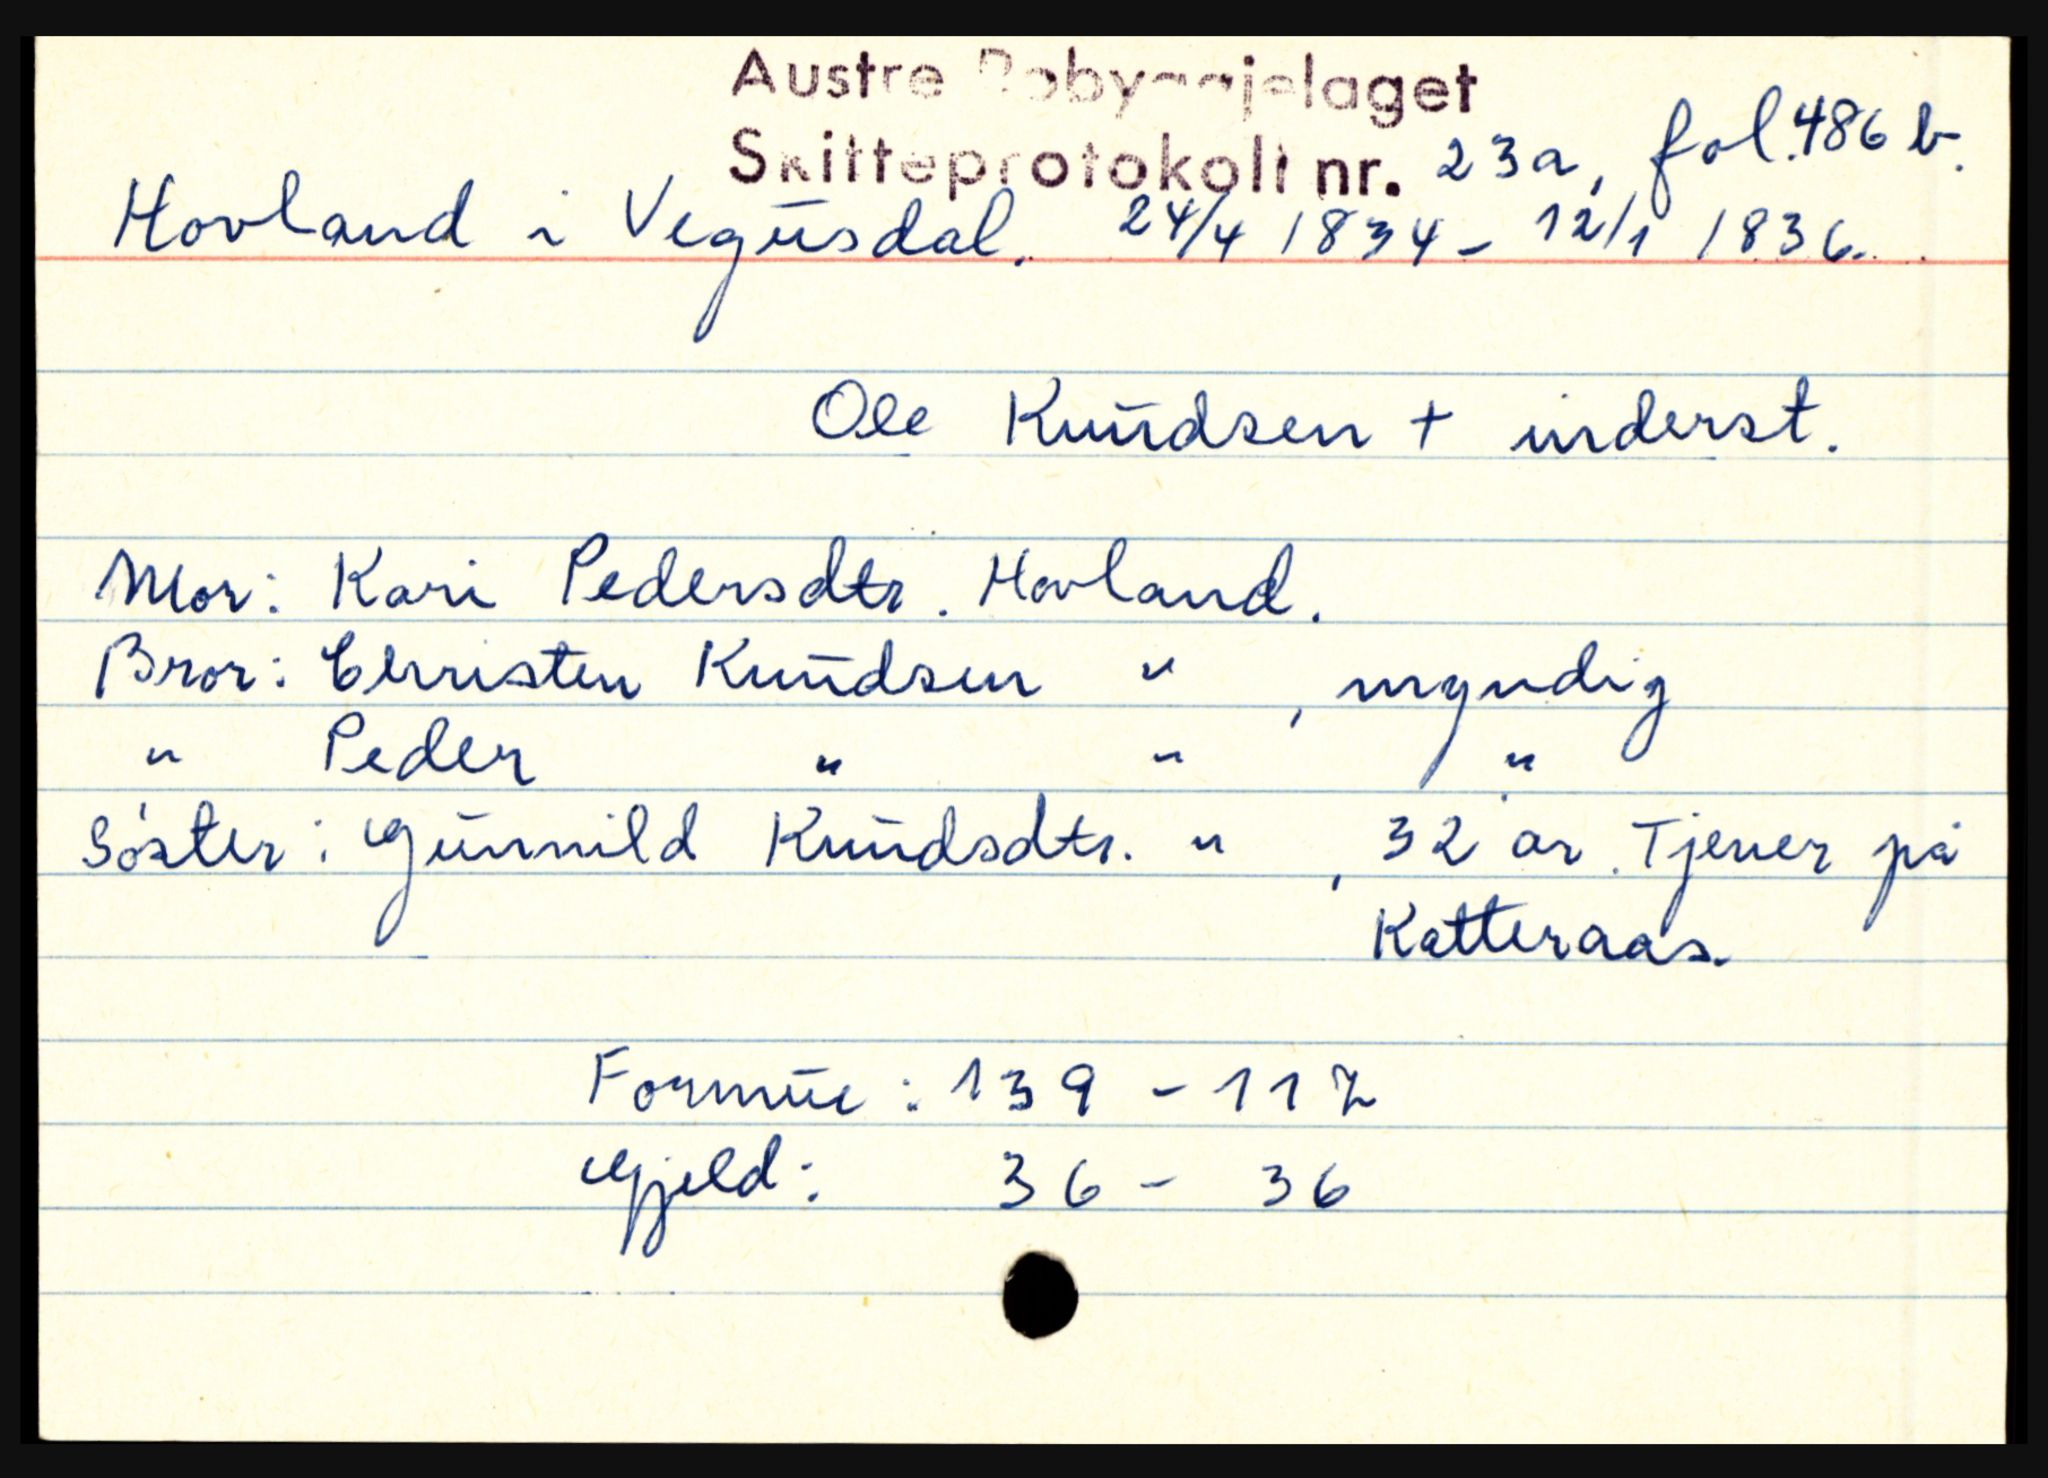 Austre Robyggjelaget
Skifteprotokoll nr. 23a, fol. 486 b.
Hovland i Vegusdal. 24/4 1834 - 12/1 1836.
Ole Knudsen + inderst.
Mor: Kari Pedersdtr. Hovland.
Bror: Christen Knudsen " , myndig
" Peder " " "
Söster: Gunnild Knudsdtr. " , 32 år. Tjener på
Katteraas.
Formue: 139 - 117
Gjeld: 36 - 36